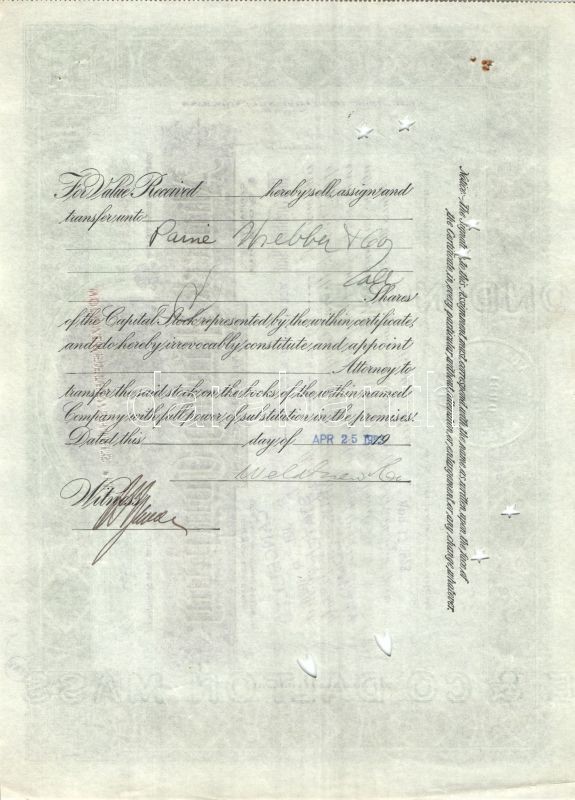 For Value Received hereby sell, assign, and
transfer unto
Paine Webber & Co
Shares
of the Capital Stock represented by the within certificate,
and do hereby irrevocably constitute and appoint
Attorney to
transfer the said stock on the books of the within named
Company with full power of substitution in the premises.
Dated, this day of APR 25 19
Witness
Notice: The signature to this Assignment must correspond with the name as written upon the face of
the Certificate in every particular without alteration or enlargement or any change whatever.
& CO DALTON MASS